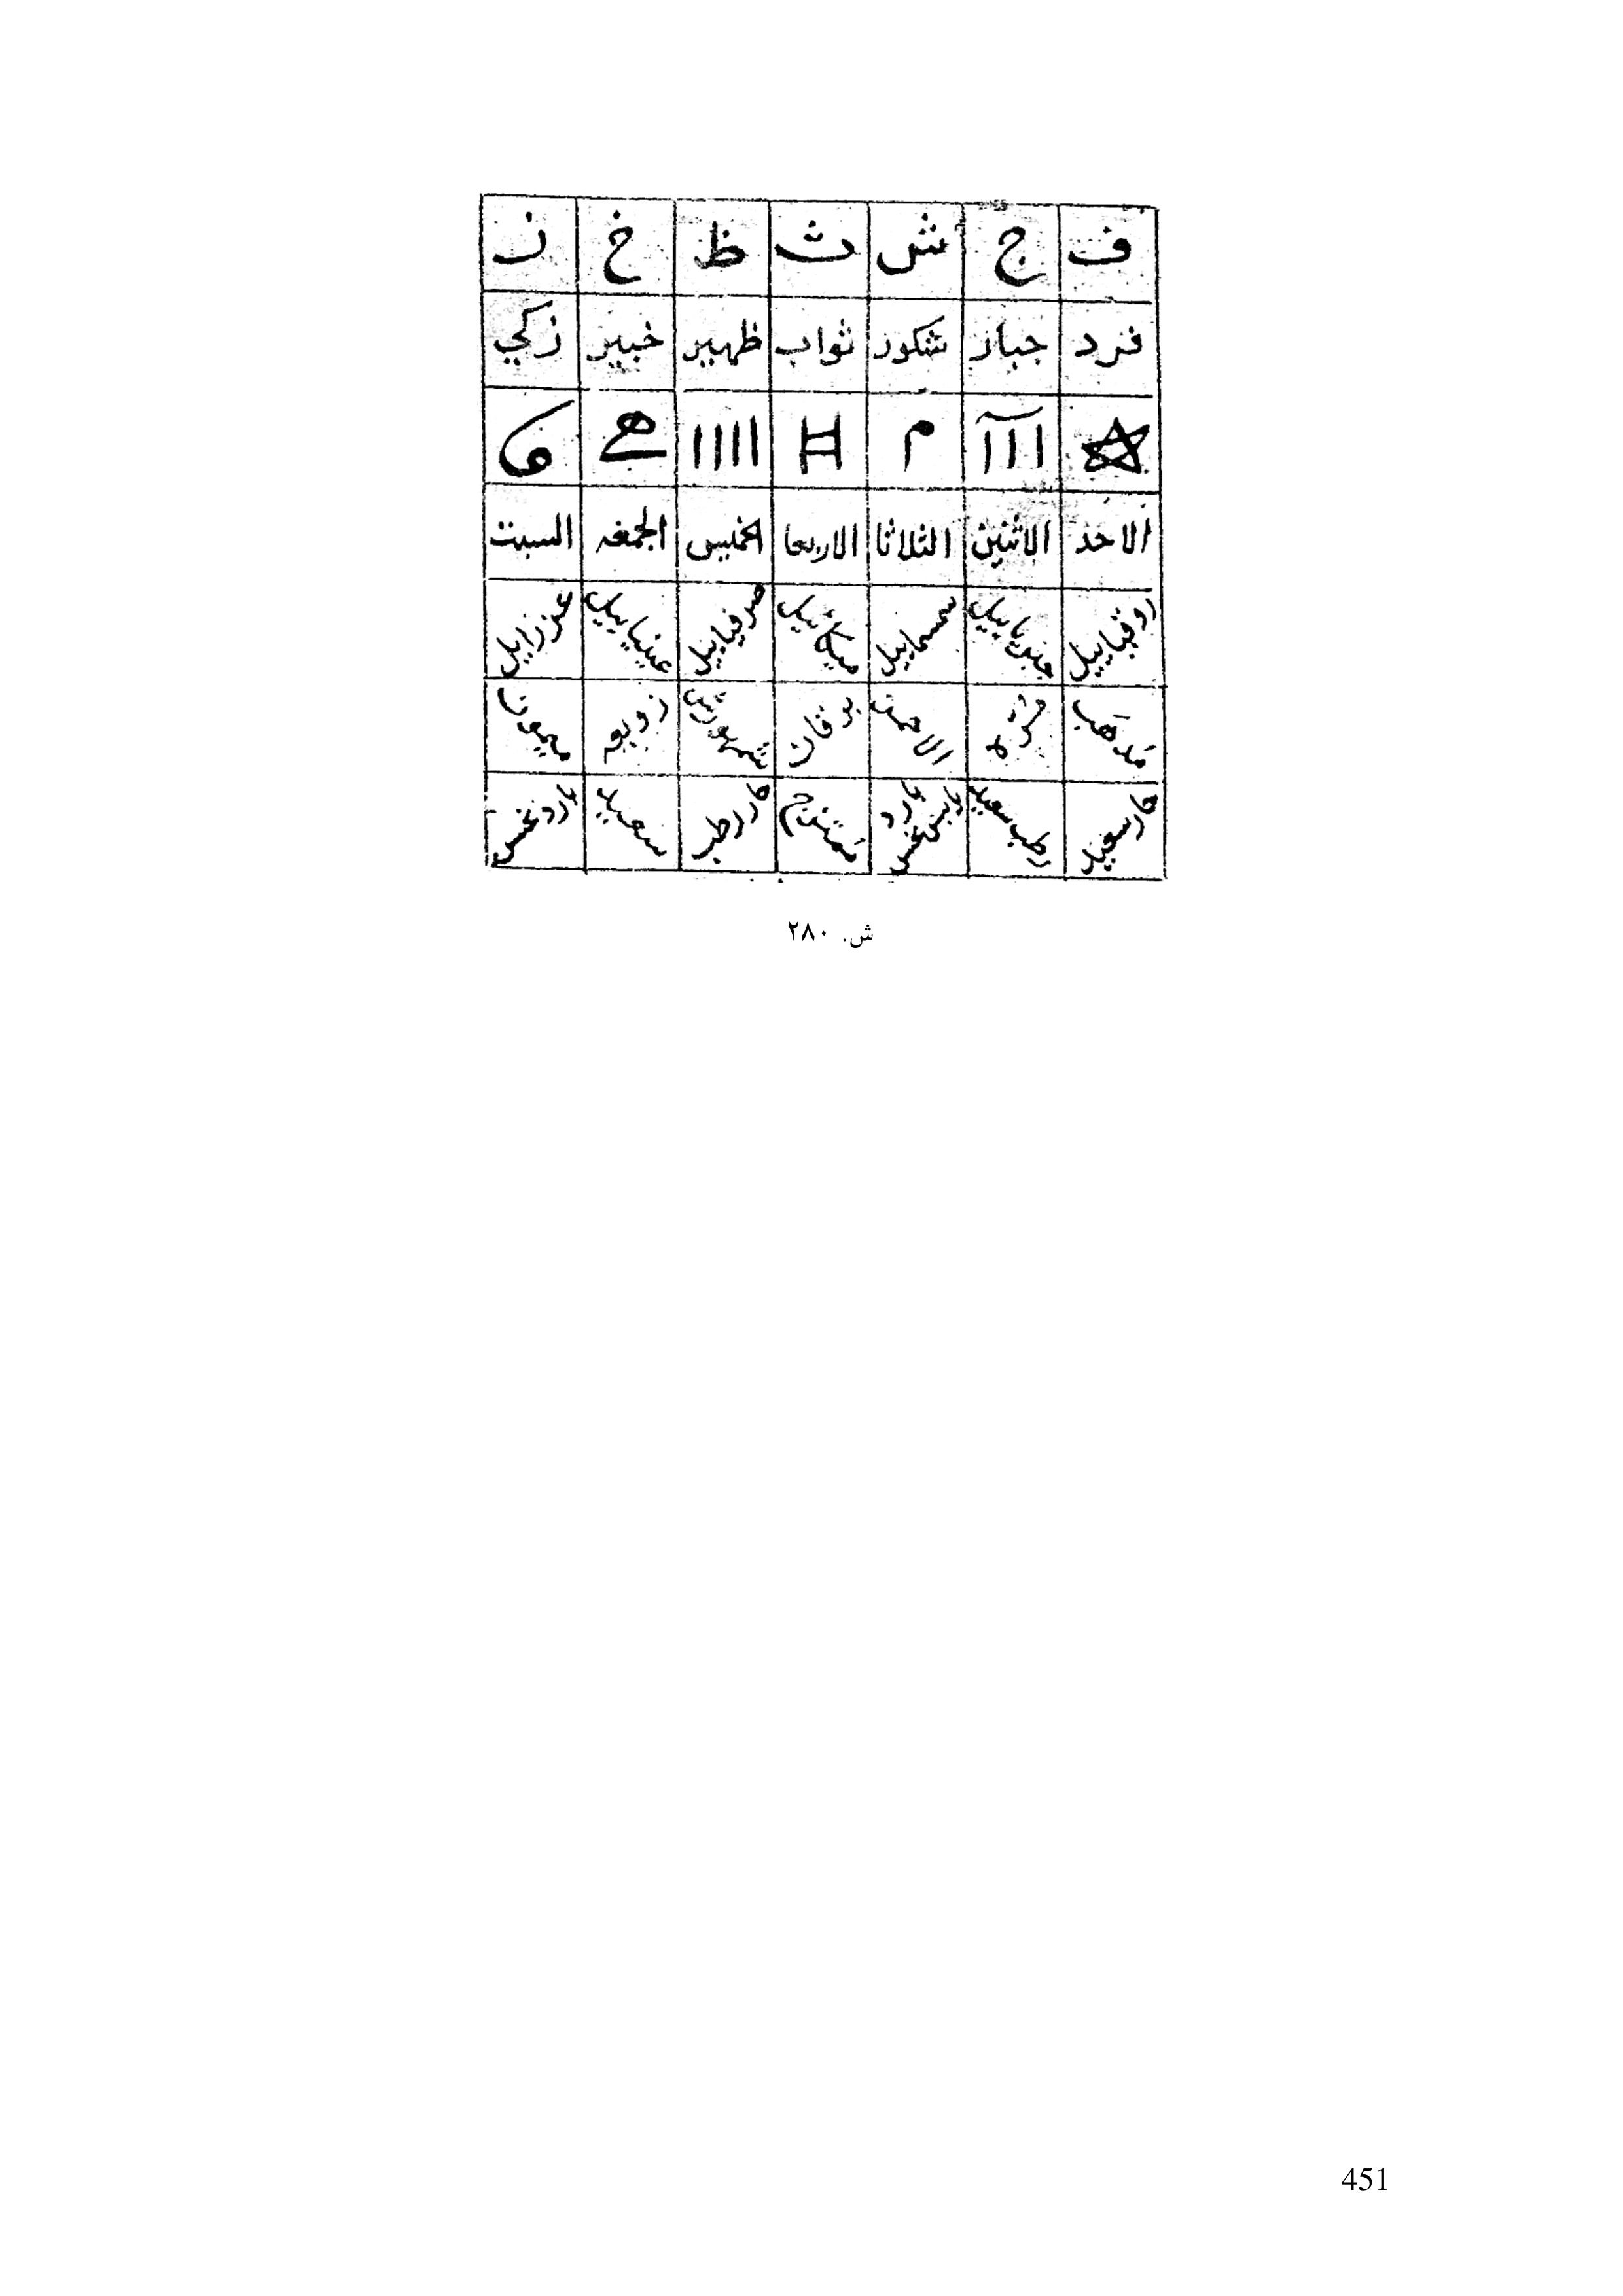 ف ج ش ث ظ خ ز
فرد جبار شكور ثواب ظهير خبير زكي
م ااا هـ
الاحد الاثنين الثلاثا الاربعا الخميس الجمعه السبت
روقياييل جبرياييل سمساييل ميكائيل صرفياييل عينياييل عزراييل
مذهب مره الاحمر برقان شمهورش زوبعه ميمون
حار سعيد رطب سعيد نحس ممتزج حار رطب سعيد بارد نحس
ش. ٢٨٠
451